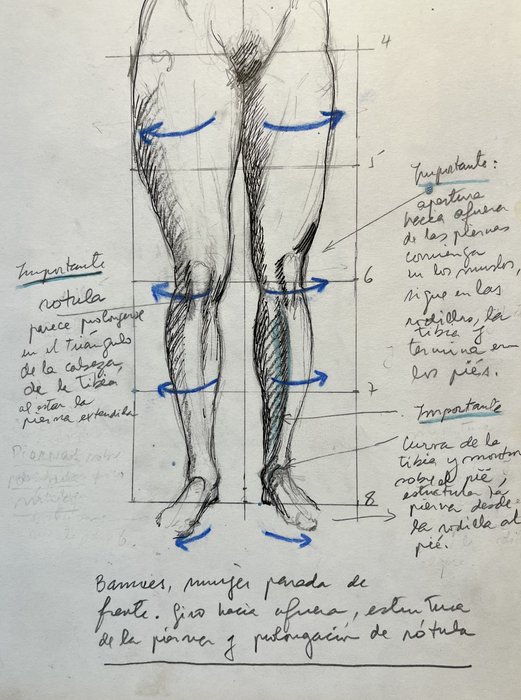 4
5
6
7
8
Importante
rotula
parece prolongarse
en el triángulo
de la cabeza
de la tibia
al estar la
pierna extendida
Importante:
apertura
hacia afuera
de las piernas
comienza
en los muslos,
sigue en las
rodillas, la
tibia y
termina en
los piés.
Importante
Curva de la
tibia y
sobre el pié,
estructura la
pierna desde
la rodilla al
pié.
Bammes, mujer parada de
frente. Giro hacia afuera, estructura
de la pierna y prolongación de rótula